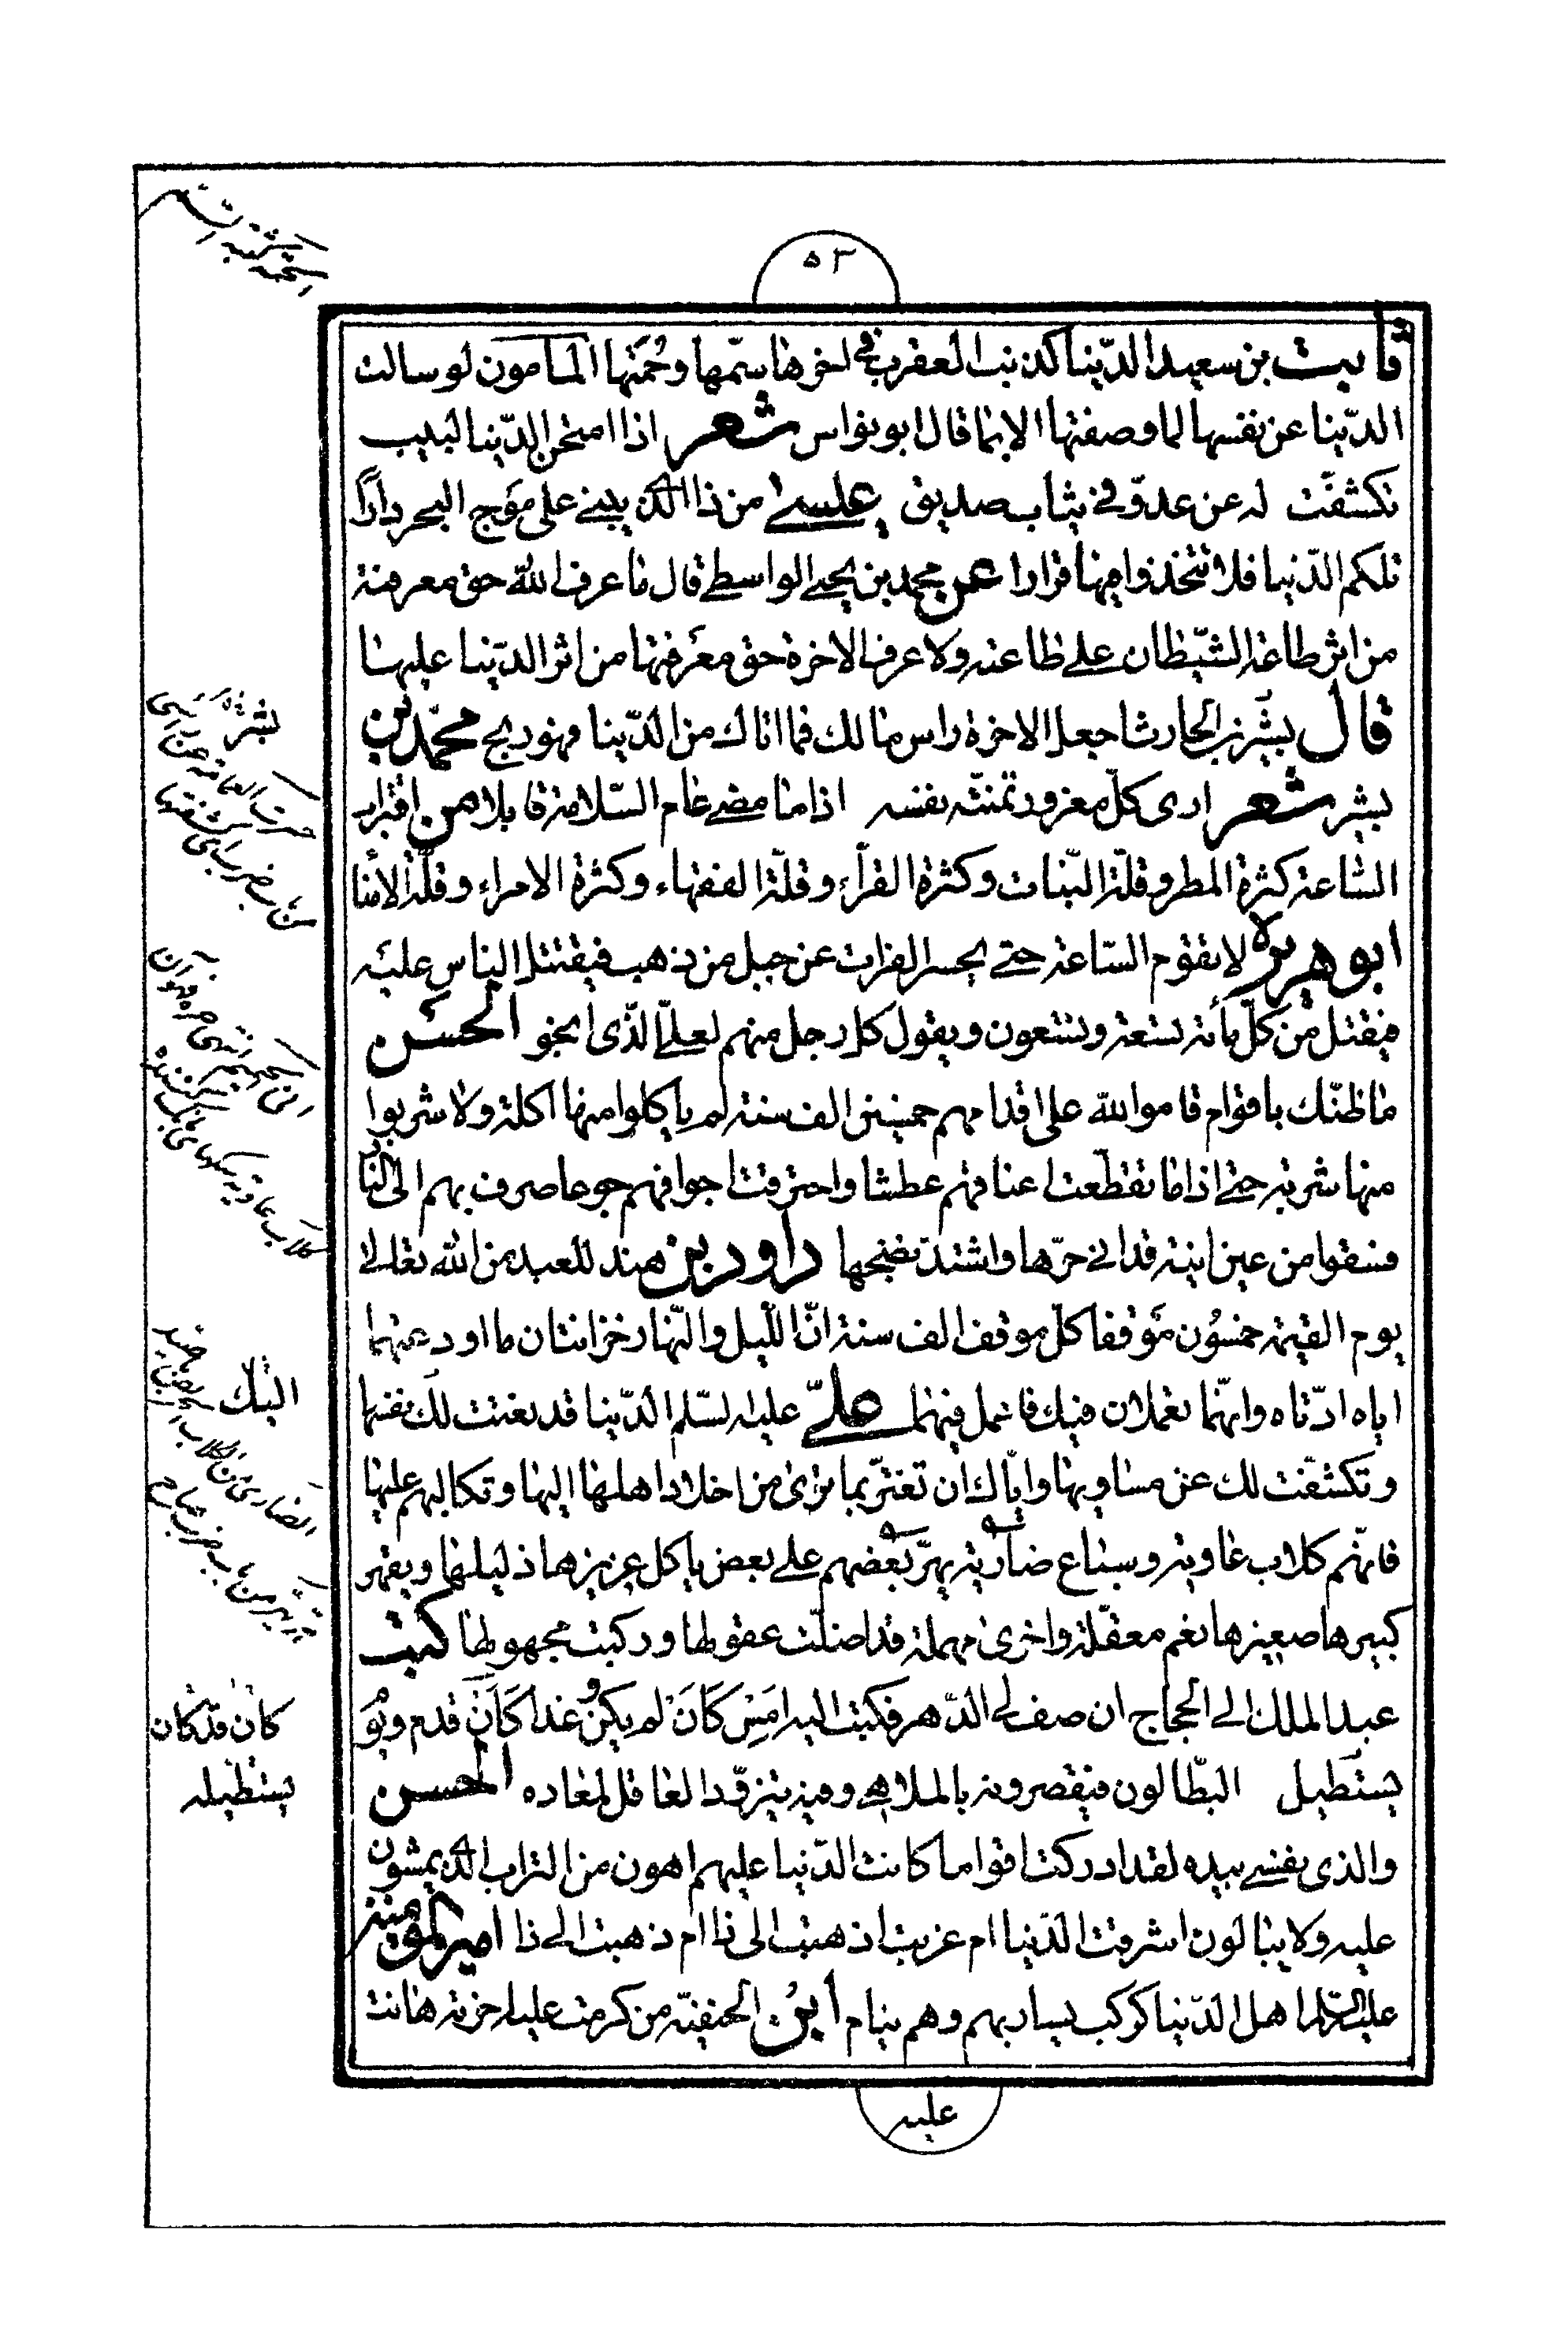 ٥٣
ثابت بن سعيد الدّنيا كذنب العقرب فى اخرها سمّها وحُمَتها المامون لو سالت
الدّنيا عن نفسها لما وصفتها الا بما قال ابو نواس شعر اذا امتحن الدّنيا لبيب
تكشفّت له عن عدوّ فى ثياب صديق عيسى من ذا الذى يبنى على مَوج البحر داراً
تلكم الدّنيا فلا تتّخذوا منها قرارا عن محمد بن يحيى الواسطى قال ما عرف الله حق معرفته
من اثر طاعة الشيّطان على طاعته ولا عرف الاخرة حق معرفتها من اثر الدّنيا عليها
قال بشر بن الحارث اجعل الاخرة راس مالك فما اتاك من الدّنيا فهو ربح محمّد بن
بشير شعر ارى كلّ مغرور تمنّته نفسه اذا ما مضى عام السّلامة قابلا من اقتراب
السّاعة كثرة المطر وقلّة النّبات وكثرة القرآء وقلّة الفقهاء وكثرة الامراء وقلّة الامنا
ابو هريرة لا تقوم السّاعة حتى يحسر الفرات عن جبل من ذهب فيقتتل الناس عليه
فيقتل من كلّ مأئة تسعة وتسعون ويقول كل رجل منهم لعلىّ الذّى انجو الحسن
ما ظنّك باقوام قاموا لله على اقدامهم خمسين الف سنة لم ياكلوا منها اكلة ولا شربوا
منها شربة حتى اذا ما تقطّعت اعناقهم عطشا واحترقت اجوافهم جوعا صرف بهم الى النّار
فسقوا من عين انية قد انى حرّها واشتدّ نضجها داود بن هند للعبد من الله تعالى
يوم القيمة خمسُون مَوقفا كلّ موقف الف سنة انّ اللّيل والنّهار خزانتان ما اودعتهما
اياه ادّتاه وانّهما تعملان فيك فاعمل فيهما علىّ عليه السّلم الدّنيا قد نعتت لك نفسها
وتكشفّت لك عن مساويها وايّاك ان تغترّ بما ترى من اخلاد اهلها اليها وتكالبهم عليها
فانّهم كلاب عاوية وسباع ضارية يهرّ بعضهم على بعض ياكل عزيزها ذليلها ويقهر
كبيرها صغيرها نعم معقّلة واخرى مهملة قد اضلّت عقولها وركبت مجهولها كتب
عبد الملك الى الحجاج ان صف لى الدّهر فكتب اليه امسِ كَانَ لم يكن وغدا كَاَن قدم ويوَم
يستَطيل البطّالون فيقصرونه بالملاهى وفيه يتزوّد العاقل لمعاده الحسن
والذى نفسى بيده لقد ادركت اقواما كانت الدّنيا عليهم اهون من التراب الذى يمشون
عليه ولا يبالون اشرقت الدّنيا ام غربت اذهبت الى ذا ام ذهبت الى ذا امير المؤمنين
عليه السّلم اهل الدّنيا كركب يسار بهم وهم ينام ابن الحنفيّة من كرمت عليه حزبة هانت
عليه
بشر
اليك
كان قد كان
يستطيله